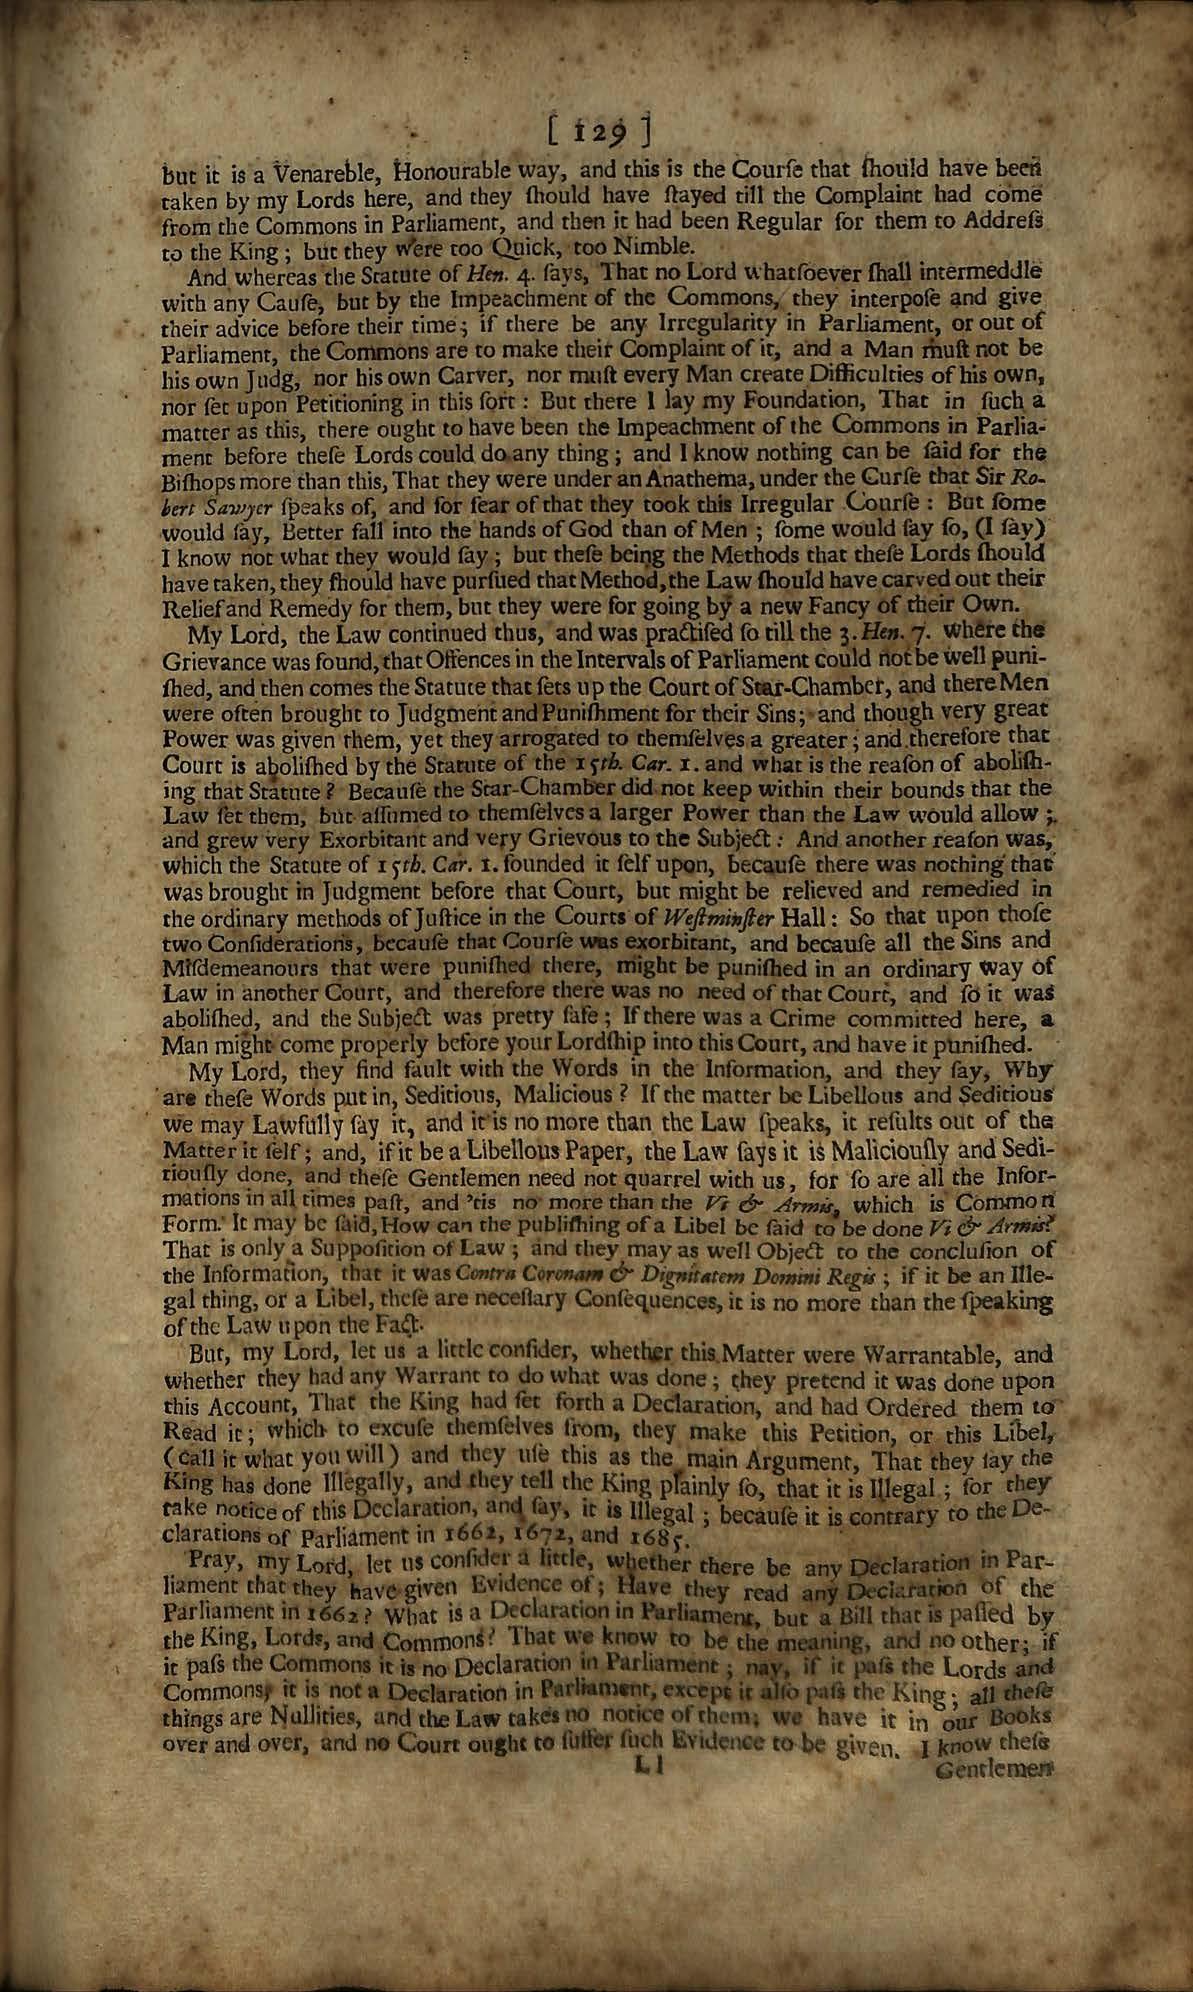 [ 129 ]
but it is a Venareble, Honourable way, and this is the Courſe that ſhould have been
taken by my Lords here, and they ſhould have ſtayed till the Complaint had come
from the Commons in Parliament, and then it had been Regular for them to Addreſs
to the King; but they were too Quick, too Nimble.
And whereas the Statute of Hen. 4. ſays, That no Lord whatſoever ſhall intermeddle
with any Cauſe, but by the Impeachment of the Commons, they interpoſe and give
their advice before their time; if there be any Irregularity in Parliament, or out of
Parliament, the Commons are to make their Complaint of it, and a Man muſt not be
his own Judg, nor his own Carver, nor muſt every Man create Difficulties of his own,
nor ſet upon Petitioning in this ſort: But there I lay my Foundation, That in ſuch a
matter as this, there ought to have been the Impeachment of the Commons in Parlia-
ment before theſe Lords could do any thing; and I know nothing can be ſaid for the
Biſhops more than this, That they were under an Anathema, under the Curſe that Sir Ro-
bert Sawyer ſpeaks of, and for fear of that they took this Irregular Courſe: But ſome
would ſay, Better fall into the hands of God than of Men; ſome would ſay ſo, (I ſay)
I know not what they would ſay; but theſe being the Methods that theſe Lords ſhould
have taken, they ſhould have purſued that Method, the Law ſhould have carved out their
Relief and Remedy for them, but they were for going by a new Fancy of their Own.
My Lord, the Law continued thus, and was practiſed ſo till the 3. Hen. 7. where the
Grievance was found, that Offences in the Intervals of Parliament could not be well puni-
ſhed, and then comes the Statute that ſets up the Court of Star-Chamber, and there Men
were often brought to Judgment and Puniſhment for their Sins; and though very great
Power was given them, yet they arrogated to themſelves a greater; and therefore that
Court is aboliſhed by the Statute of the 15th. Car. 1. and what is the reaſon of aboliſh-
ing that Statute? Becauſe the Star-Chamber did not keep within their bounds that the
Law ſet them, but aſſumed to themſelves a larger Power than the Law would allow;
and grew very Exorbitant and very Grievous to the Subject: And another reaſon was,
which the Statute of 15th. Car. 1. founded it ſelf upon, becauſe there was nothing that
was brought in Judgment before that Court, but might be relieved and remedied in
the ordinary methods of Juſtice in the Courts of Weſtminſter Hall: So that upon thoſe
two Conſiderations, becauſe that Courſe was exorbitant, and becauſe all the Sins and
Miſdemeanours that were puniſhed there, might be puniſhed in an ordinary way of
Law in another Court, and therefore there was no need of that Court, and ſo it was
aboliſhed, and the Subject was pretty ſafe; If there was a Crime committed here, a
Man might come properly before your Lordſhip into this Court, and have it puniſhed.
My Lord, they find fault with the Words in the Information, and they ſay, Why
are theſe Words put in, Seditious, Malicious? If the matter be Libellous and Seditious
we may Lawfully ſay it, and it is no more than the Law ſpeaks, it reſults out of the
Matter it ſelf; and, if it be a Libellous Paper, the Law ſays it is Maliciouſly and Sedi-
tiouſly done, and theſe Gentlemen need not quarrel with us, for ſo are all the Infor-
mations in all times paſt, and 'tis no more than the Vi & Armis, which is Common
Form. It may be ſaid, How can the publiſhing of a Libel be ſaid to be done Vi & Armis?
That is only a Suppoſition of Law; and they may as well Object to the concluſion of
the Information, that it was Contra Coronam & Dignitatem Domini Regis; if it be an Ille-
gal thing, or a Libel, theſe are neceſſary Conſequences, it is no more than the ſpeaking
of the Law upon the Fact.
But, my Lord, let us a little conſider, whether this Matter were Warrantable, and
whether they had any Warrant to do what was done; they pretend it was done upon
this Account, That the King had ſet forth a Declaration, and had Ordered them to
Read it; which to excuſe themſelves from, they make this Petition, or this Libel,
(call it what you will) and they uſe this as the main Argument, That they ſay the
King has done Illegally, and they tell the King plainly ſo, that it is Illegal; for they
take notice of this Declaration, and ſay, it is Illegal; becauſe it is contrary to the De-
clarations of Parliament in 1662, 1672, and 1685.
Pray, my Lord, let us conſider a little, whether there be any Declaration in Par-
liament that they have given Evidence of; Have they read any Declaration of the
Parliament in 1662? What is a Declaration in Parliament, but a Bill that is paſſed by
the King, Lords, and Commons? That we know to be the meaning, and no other; if
it paſs the Commons it is no Declaration in Parliament; nay, if it paſs the Lords and
Commons, it is not a Declaration in Parliament, except it alſo paſs the King; all theſe
things are Nullities, and the Law takes no notice of them; we have it in our Books
over and over, and no Court ought to ſuffer ſuch Evidence to be given. I know theſe
Ll
Gentlemen